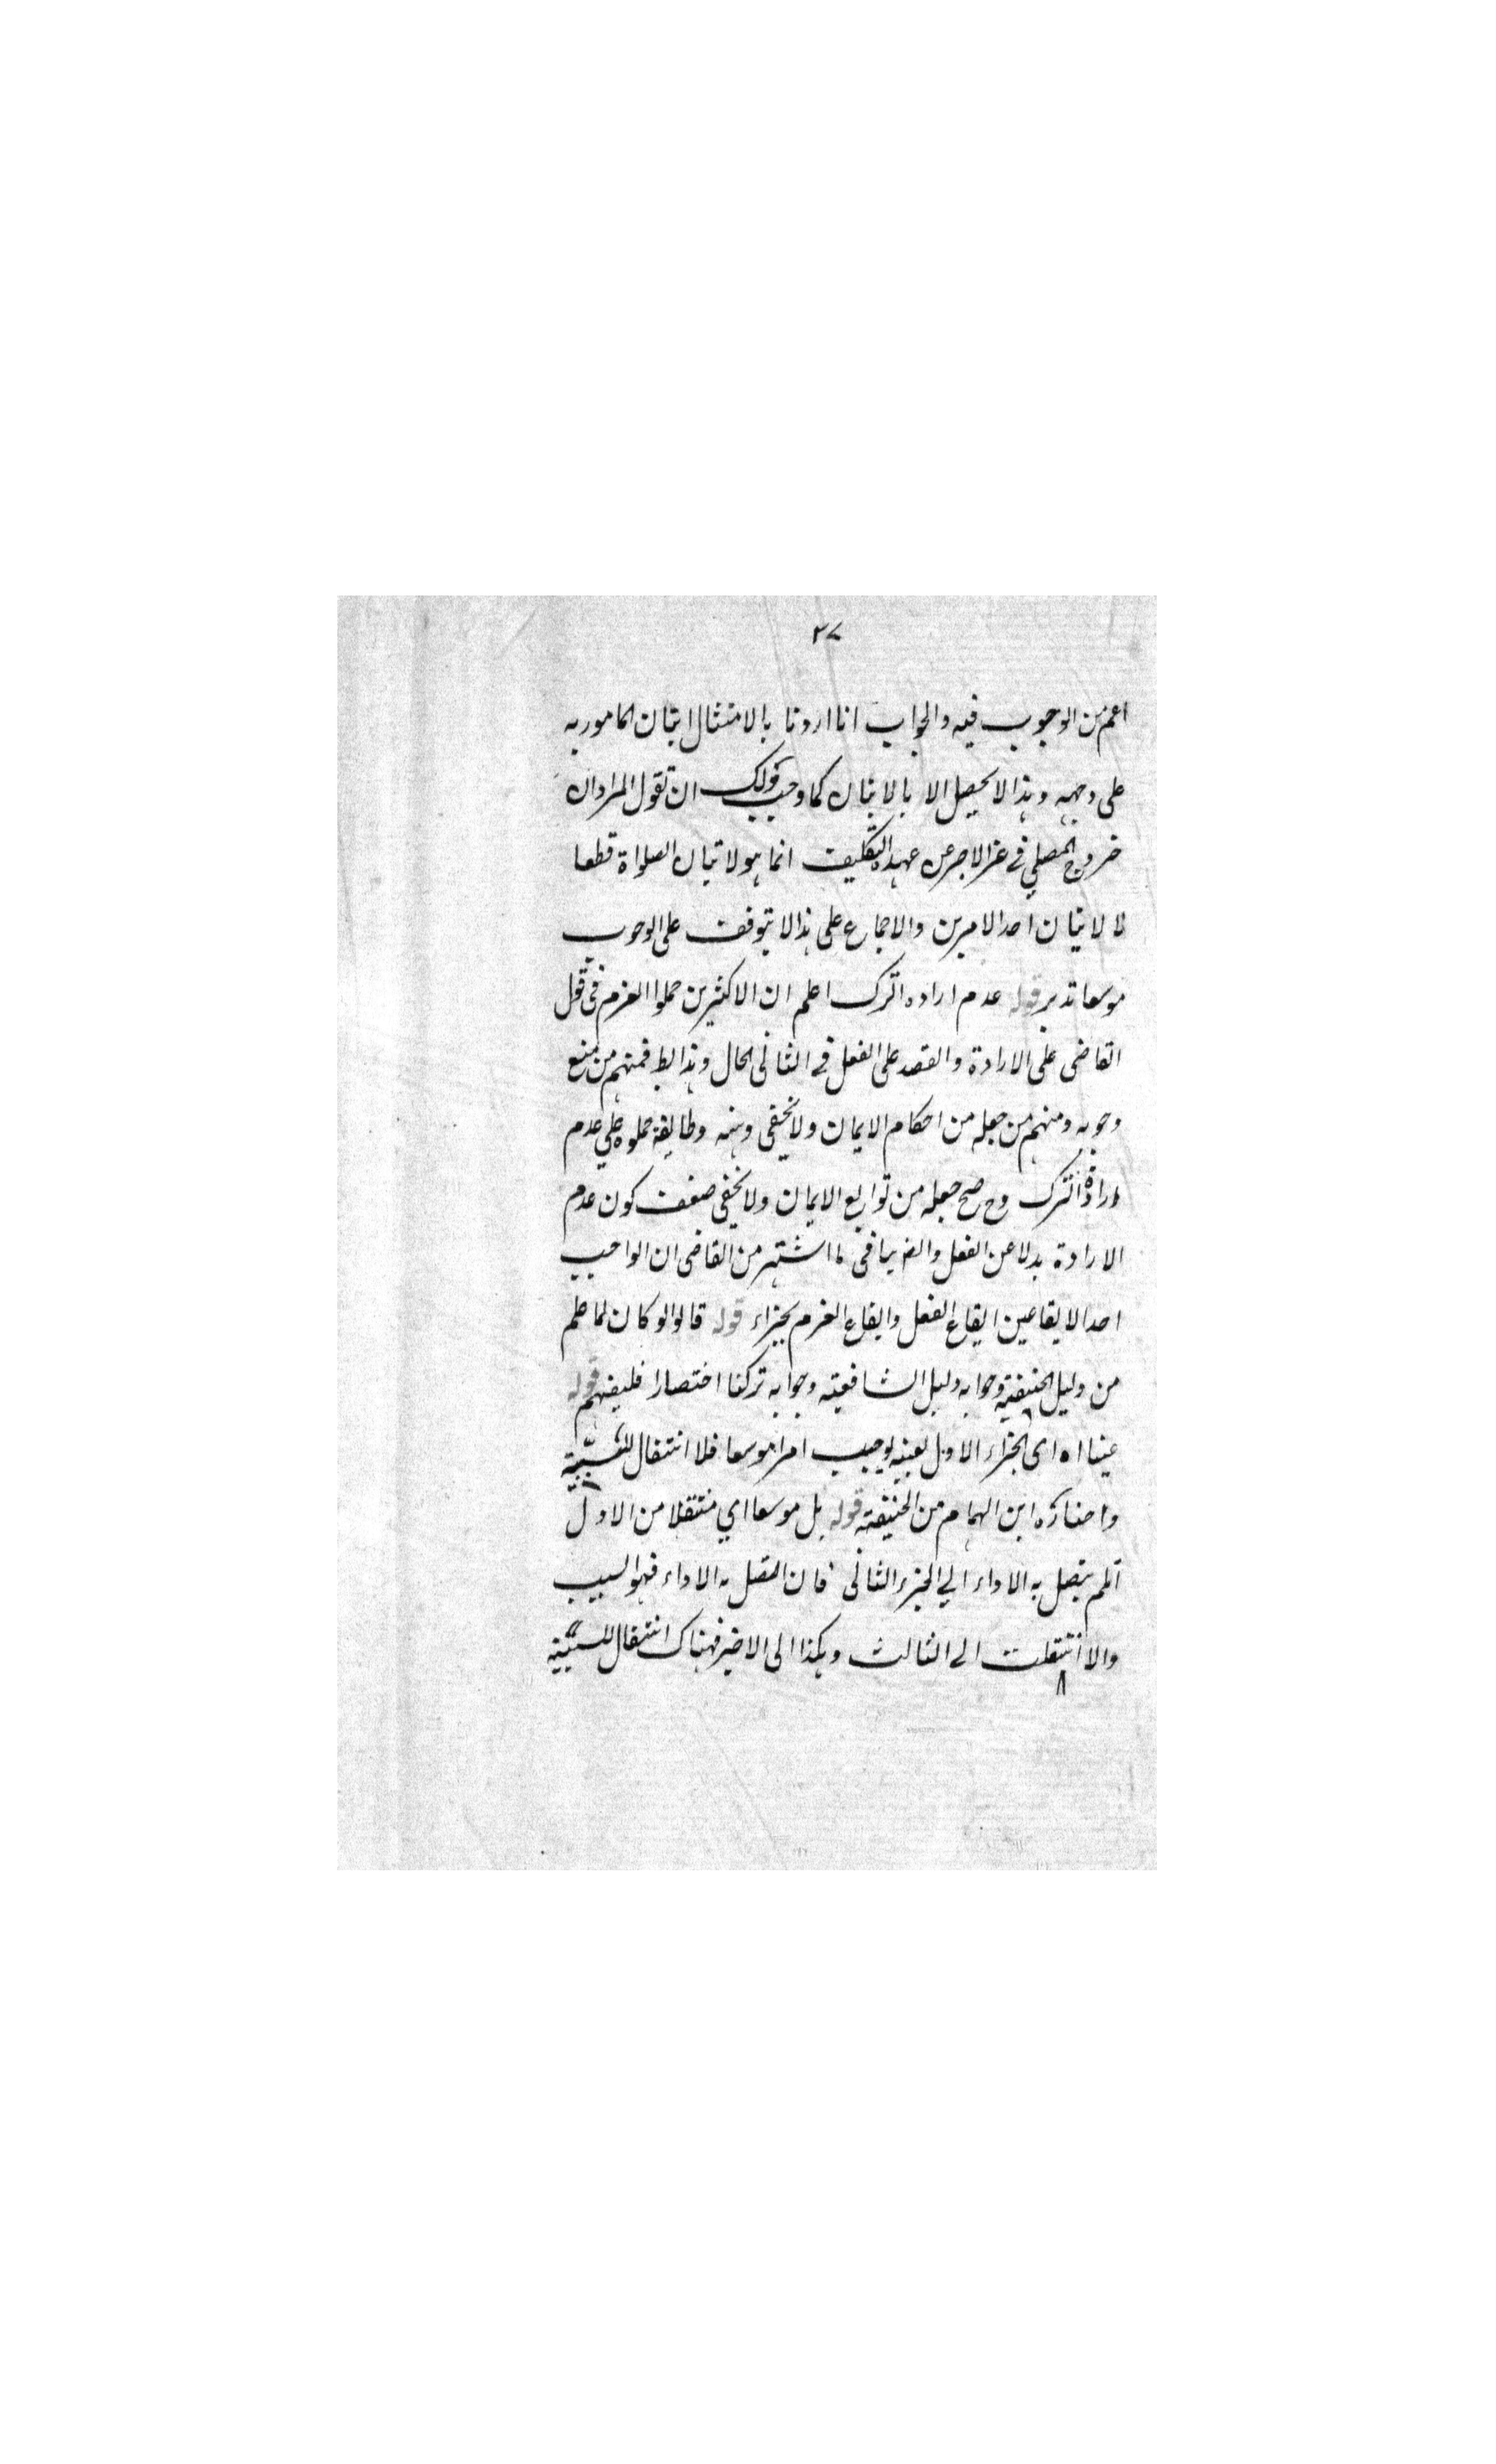 ٣٧
اعم من الوجوب فيه والجواب انا اردنا بالامتثال اتيان المامور به
على وجهه وهذا لا يحصل الا بالاتيان كما وجب ولك ان تقول المراد ان
خروج المصلي في غير الاخر عن عهدة التكليف انما هو لاتيان الصلواة قطعا
لا لاتيان احد الامرين والاجماع على هذا لا يتوقف على الوجوب
موسعا تدبر قوله عدم ارادة الترك اعلم ان الاكثرين حملوا العزم في قول
القاضى على الارادة والقصد على الفعل في الثانى الحال وهذا بط فمنهم من منع
وجوبه ومنهم من جعله من احكام الايمان ولا يخفى وهنه وطايفة حملوه على عدم
ارادة الترك وح صح جعله من توابع الايمان ولا يخفى ضعف كون عدم
الارادة بدلا عن الفعل وايضا ينافى ما اشتهر من القاضى ان الواجب
احد الايقاعين ايقاع الفعل وايقاع العزم بجزاء قوله قالوا لو كان لما علم
من دليل الحنيفية وجوابه دليل الشافعية وجوابه تركنا اختصارا فليفهم قوله
عينا اه اى الجزاء الاول بعينه لوجب امرا موسعا فلا انتقال للسببية
واختاره ابن الهمام من الحنيفة قوله بل موسعا اي منتقلا من الاول
ان لم يتصل به الاداء الي الجزء الثانى فان اتصل به الاداء فهو السبب
والا انتقلت الى الثالث وهكذا الى الاخير فهناك انتقال للسببية